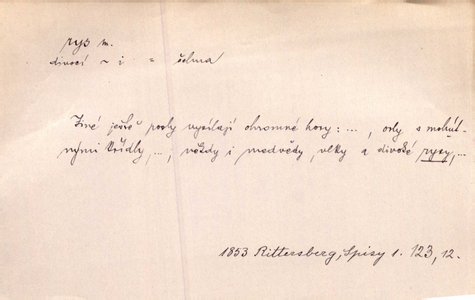 rys m.
divocí ~ i = šelma
Jiné ještě posly vysílají ohromné hory: ..., orly s mohút-
nými křídly, ..., vždy i medvědy, vlky a divoké rysy, ...
1853 Rittersberg, Spisy 1. 123, 12.